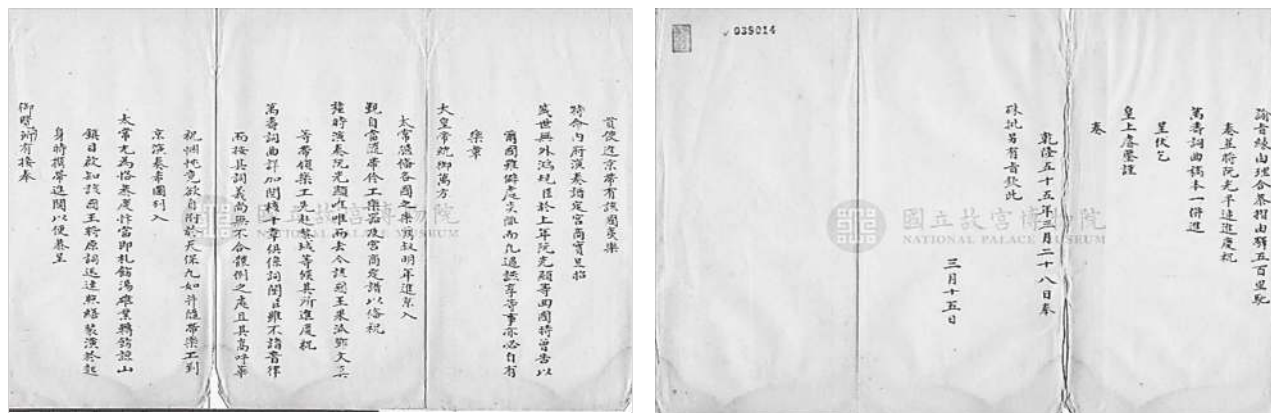 貢使進京帶有該國
特命內府演奏諧定宮商
盛世無外鴻規臣於上年阮光顯等回國時曾告以
爾國雖僻處炎徼而凡遇讌享等事亦必自有
樂章
大皇帝統御萬方
太常應備各國之樂 明年進京入
覲自當隨帶伶工樂器及宮商定譜以俗祝
釐時演奏阮光顯唯唯而去今該國王果派鄭文真
等帶領樂工先赴 城等候其所進慶祝
萬壽詞曲詳加閱核十章俱係詞闋臣雖不諳音律
而按其詞義尚無不合體例之處且其高呼華
祝悃忱竟欲自附於天保九如并隨帶樂工到
京演奏希圖列入
太常尤為恪恭虔忭當即札飭湯雄業轉飭諒山
鎮目啟知該國王將原詞送達照繕裝潢於起
身時 帶進關以便恭呈
御覽所有接奉
諭旨緣由理合恭摺由驛五百里馳
奏並將阮光平連進慶祝
萬壽詞曲稿本一併進
呈伏乞
皇上睿鑒謹
奏
乾隆五十五年三月二十八日奉
硃批另有旨欽此
三月十五日
035014
國立故宮博物院
NATIONAL PALACE MUSEUM
國立故宮博物院
NATIONAL PALACE MUSEUM